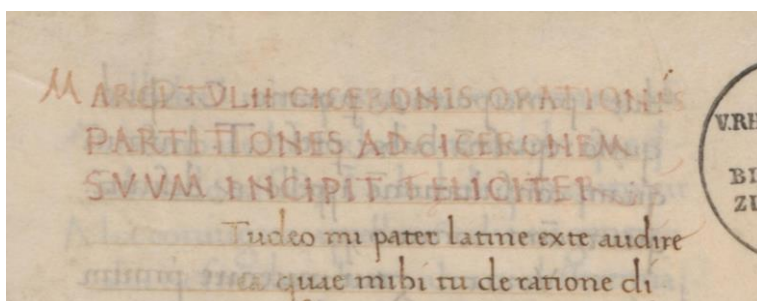 MARCI TVLII CICERONIS ORATIONIS
PARTITIONES AD CICERONEM
SVVM INCIPIT FELICITER
Tudeo mi pater latine exte audire
ea quae mihi tu de ratione di
V.RH
BI
ZU